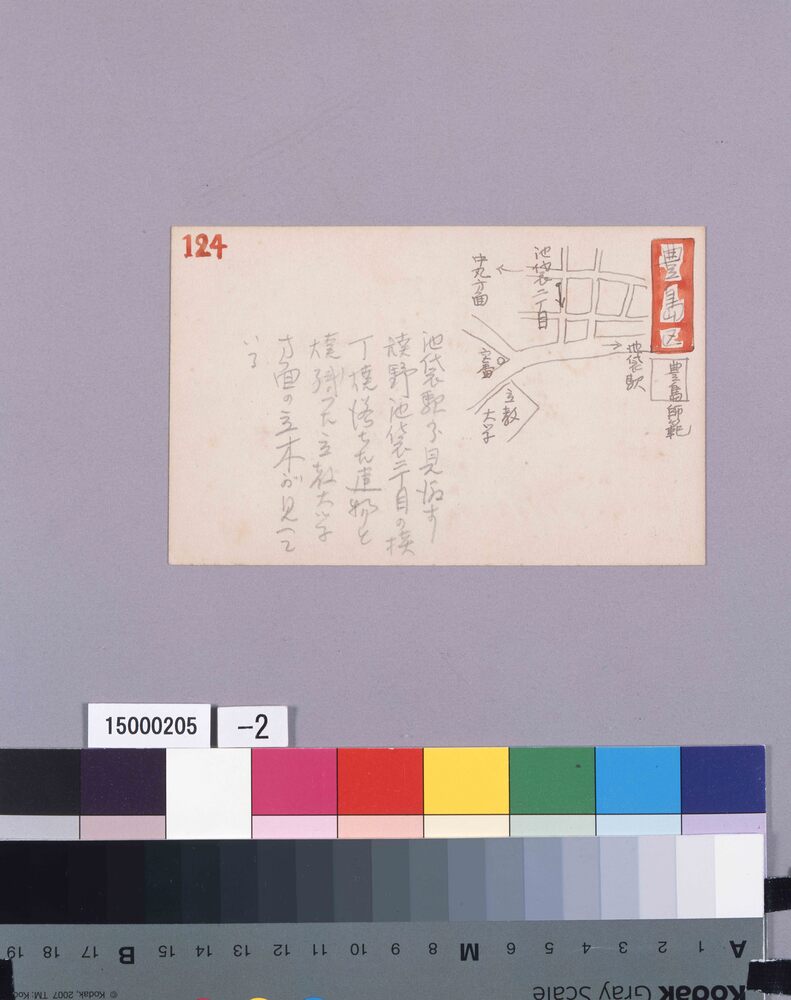 124
豊島区
豊島師範
池袋駅
池袋二丁目
中丸方面
交番
立教
大学
池袋駅から見渡す
焼野池袋二丁目の横
丁焼落ちた建物と
焼残つた立教大学
方面の立木が見へて
いる
15000205
-2
A 1 2 3 4 5 6 M 8 9 10 11 12 13 14 15 B 17 18 19
Kodak Gray Scale
© Kodak, 2007 TM: Kod